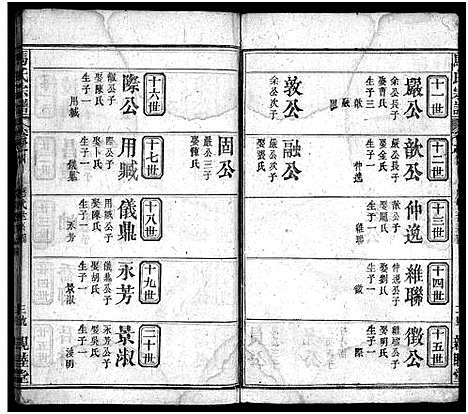 十一世
嚴公
余公長子
娶曹氏
生子一
歆
敦公
余公次子
融公
嚴公次子
娶張氏
固公
嚴公三子
娶鍾氏
十二世
歆公
嚴公長子
娶金氏
生子一
仲逸
十三世
仲逸
歆公子
生子一
維聯
十四世
維聯
仲逸公子
娶劉氏
生子一
徵
十五世
徵公
維聯公子
生子一
十六世
際公
徵公子
娶陳氏
生子一
用臧
十七世
用臧
際公子
娶卜氏
生子一
儀鼎
十八世
儀鼎
用臧公子
娶陳氏
生子一
永芳
十九世
永芳
儀鼎公子
娶胡氏
生子一
景淑
二十世
景淑
永芳公子
娶吳氏
生子一
馬氏宗譜
親睦堂